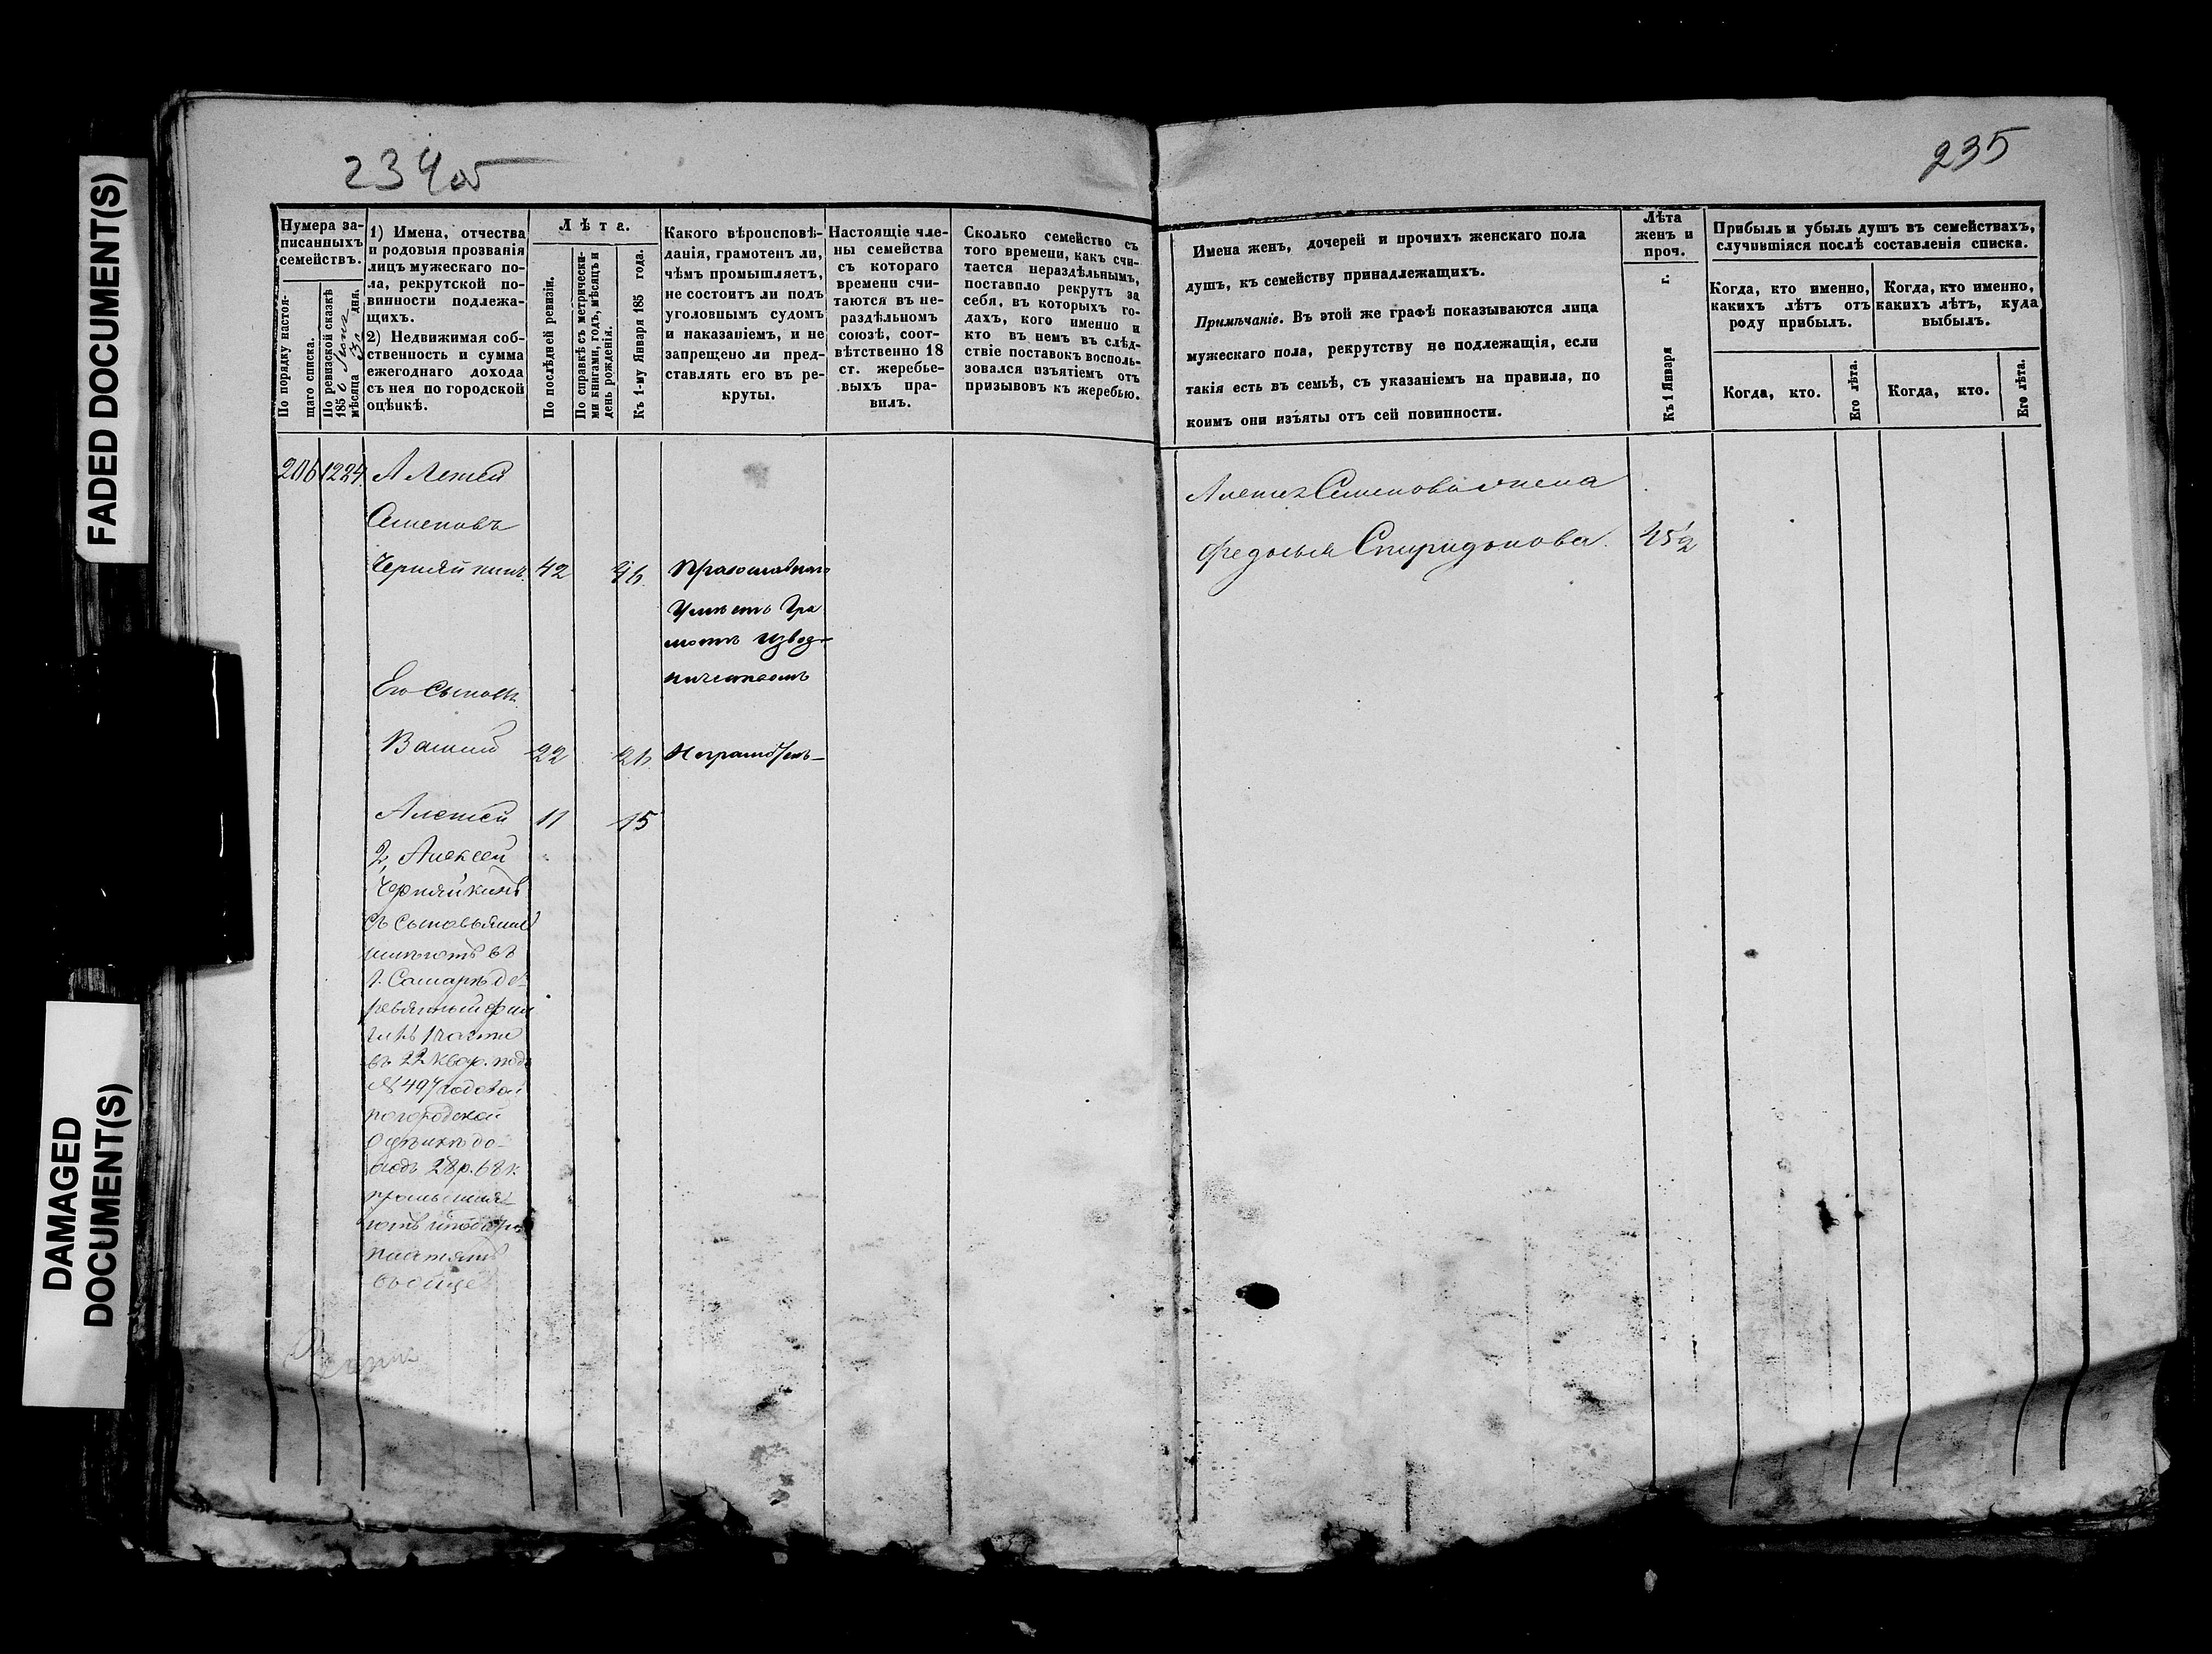 FADED DOCUMENT(S)
DAMAGED
DOCUMENT(S)
234об
Нумера за-
писанныхъ
семействъ.
По порядку настоя-
щаго списка.
По ревизской сказкѣ
185 года
мѣсяца дня.
1) Имена, отчества
и родовыя прозванія
лицъ мужескаго по-
ла, рекрутской по-
винности подлежа-
щихъ.
2) Недвижимая соб-
ственность и сумма
ежегоднаго дохода
съ нея по городской
оцѣнкѣ.
Лѣта.
По послѣдней ревизіи.
По справкѣ съ метрически-
ми книгами, годъ, мѣсяцъ и
день рожденія.
Къ 1-му Января 185 года.
Какого вѣроисповѣ-
данія, грамотенъ ли,
чѣмъ промышляетъ,
не состоитъ ли подъ
уголовнымъ судомъ
и наказаніемъ, и не
запрещено ли пред-
ставлять его въ ре-
круты.
Настоящіе чле-
ны семейства
съ котораго
времени счи-
таются въ не-
раздѣльномъ
союзѣ, соот-
вѣтственно 18
ст. жеребье-
выхъ пра-
вилъ.
Сколько семейство съ
того времени, какъ счи-
тается нераздѣльнымъ,
поставило рекрутъ за
себя, въ которыхъ го-
дахъ, кого именно и
кто въ немъ въ слѣд-
ствіе поставокъ восполь-
зовался изъятіемъ отъ
призывовъ къ жеребью.
1224.
Алексѣй
Семеновъ
Черняйкинъ 42 46. Православнаго
Умѣетъ Гра
мотѣ Извоз-
ничествомъ
Его сыновья
Василій 22 26. Неграмотенъ
Алексѣй 11 15
2, Алексѣй
Черняйкинъ
съ сыновьями
имѣютъ въ
г. Самарѣ де-
ревянный фли
гель 1 части
въ 22 квар. подъ
№ 497 годовой
по городской
Оцѣнкѣ до-
ходъ 28 р. 68 к.
промышля-
ютъ
вообще
235
Имена женъ, дочерей и прочихъ женскаго пола
душъ, къ семейству принадлежащихъ.
Примѣчаніе. Въ этой же графѣ показываются лица
мужескаго пола, рекрутству не подлежащія, если
такія есть въ семьѣ, съ указаніемъ на правила, по
коимъ они изъяты отъ сей повинности.
Лѣта
женъ и
проч.
Къ 1 Января г.
Прибыль и убыль душъ въ семействахъ,
случившіяся послѣ составленія списка.
Когда, кто именно,
какихъ лѣтъ отъ
роду прибылъ.
Когда, кто именно,
какихъ лѣтъ, куда
выбылъ.
Когда, кто.
Его лѣта.
Когда, кто.
Его лѣта.
Алексѣя Семенова жена
Федосья Спиридонова. 45 1/2